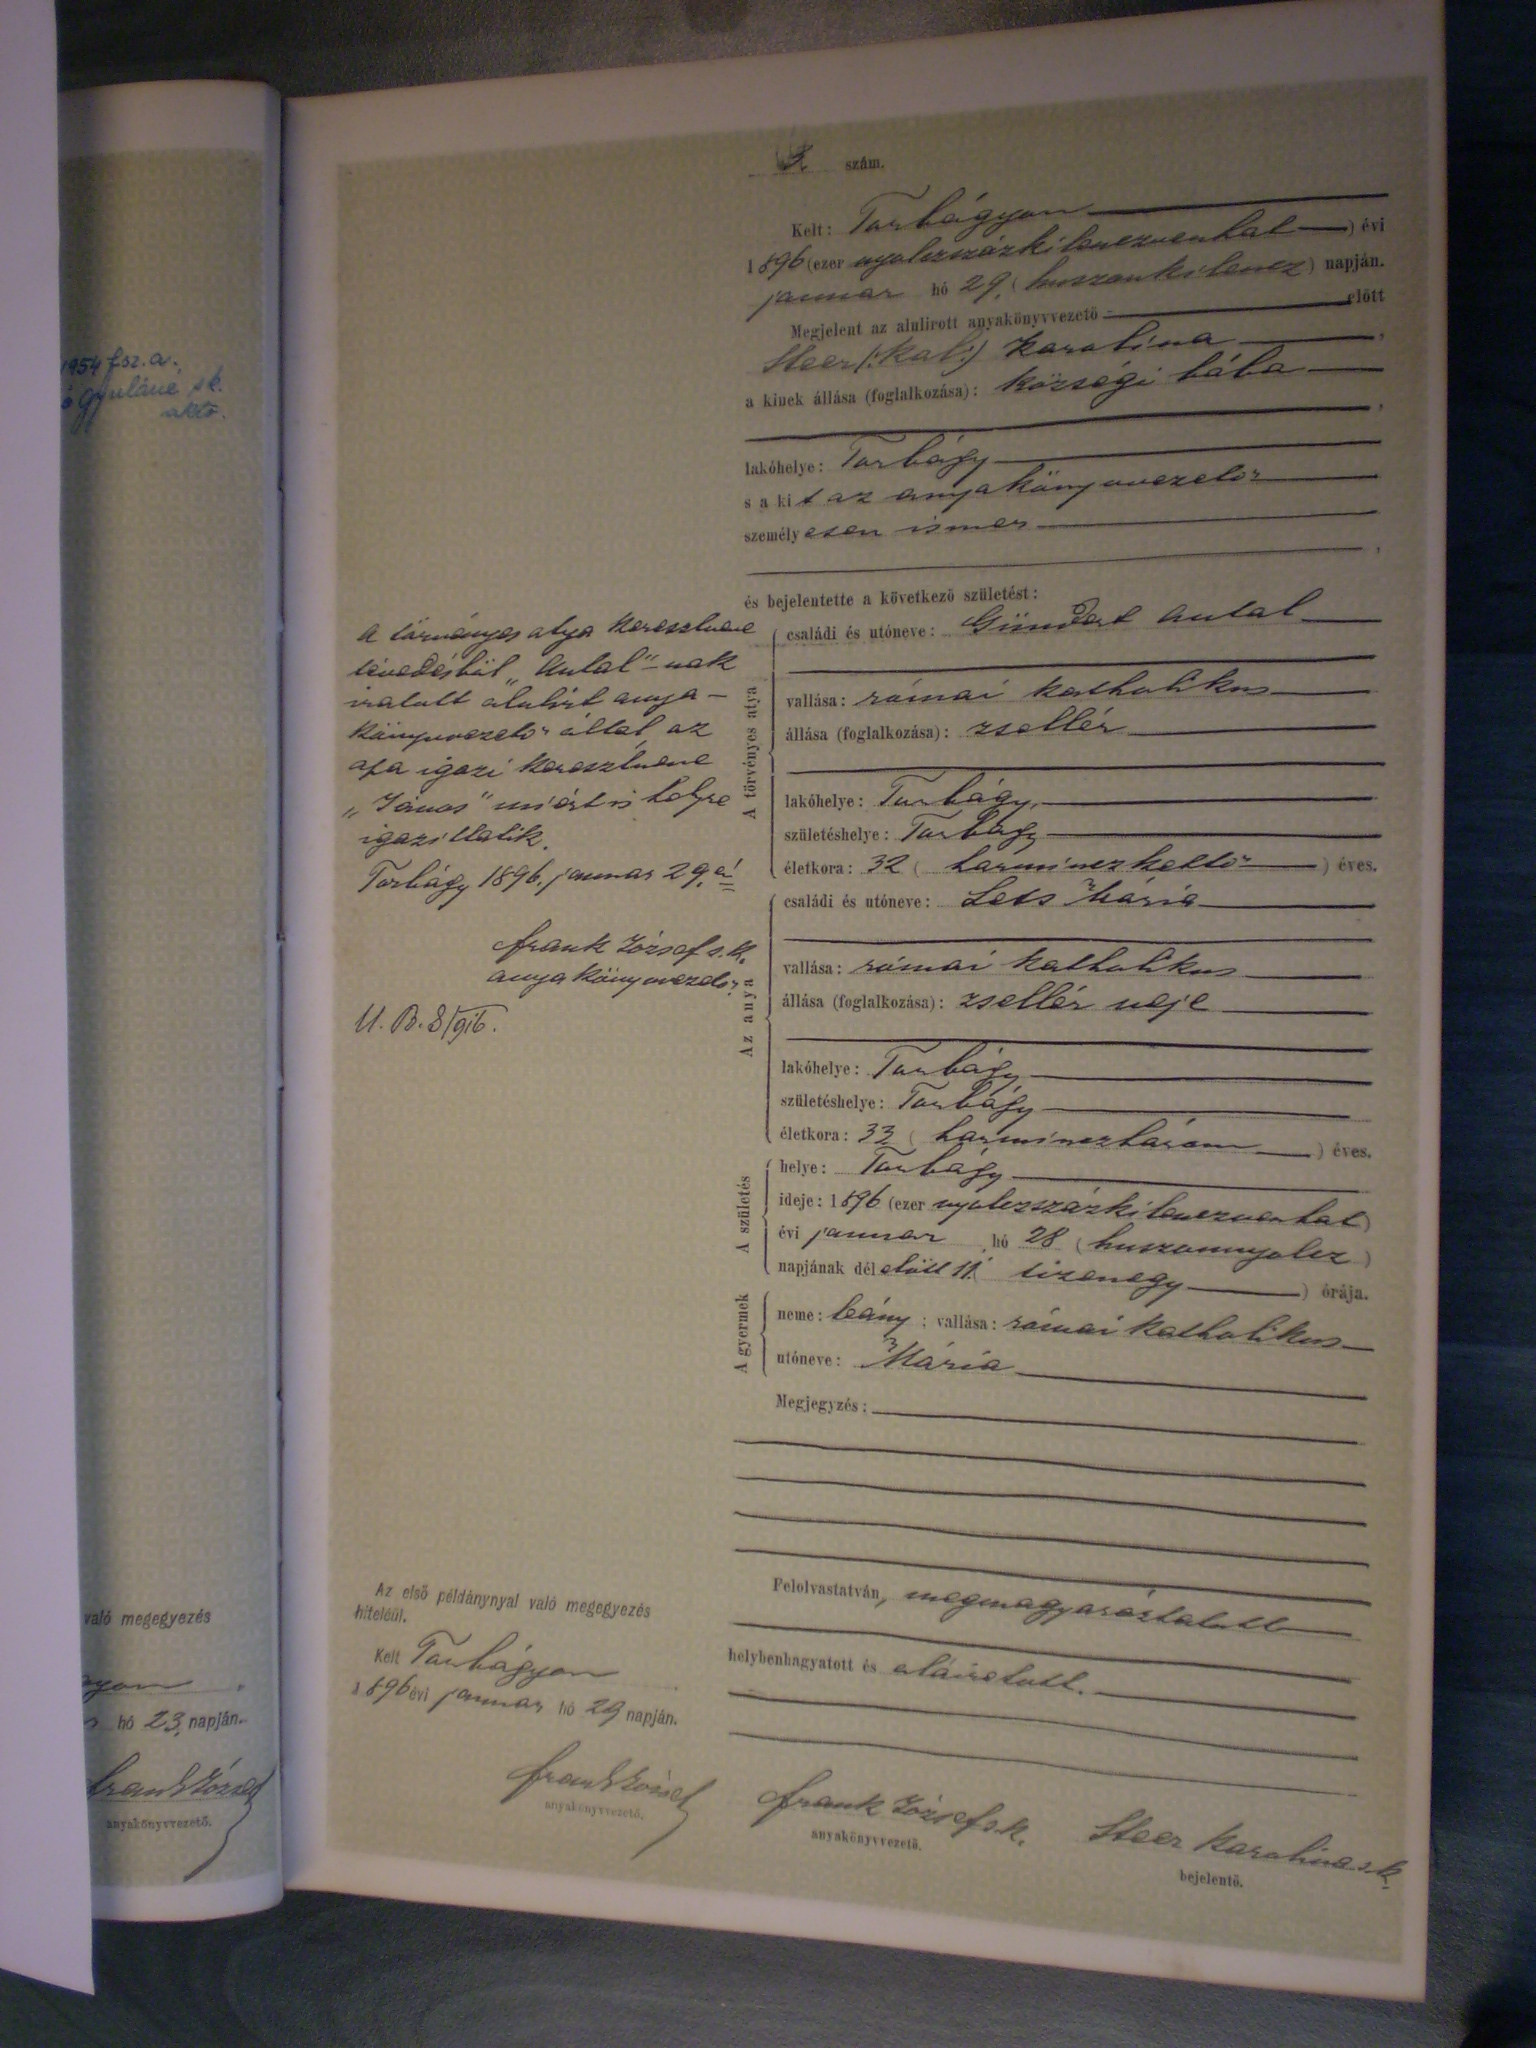 1954 fsz. a.
Gyuláné sk.
akto.
való megegyezés
hó 23. napján.
Frank József
anyakönyvvezető.
szám.
Kelt: Torbágyon
1896 (ezer nyolczszázkilenczvenhat) évi
januar hó 29. (huszonkilencz) napján.
Megjelent az alulirott anyakönyvvezető előtt
Steer (: :) Karolina,
a kinek állása (foglalkozása): községi bába
,
lakóhelye: Torbágy
s a kit az anyakönyvvezető
személyesen ismer
,
és bejelentette a következő születést:
A törvényes atya
családi és utóneve: Gündert Antal
vallása: római katholikus
állása (foglalkozása): zsellér
lakóhelye: Torbágy,
születéshelye: Torbágy
életkora: 32 (harminczkettő) éves.
Az anya
családi és utóneve: Mária
vallása: római katholikus
állása (foglalkozása): zsellér neje
lakóhelye: Torbágy
születéshelye: Torbágy
életkora: 33 (harminczhárom) éves.
A születés
helye: Torbágy
ideje: 1896 (ezer nyolczszázkilenczvenhat)
évi januar hó 28 (huszonnyolcz)
napjának délelőtt 11. (tizenegy) órája.
A gyermek
neme: leány; vallása: római katholikus
utóneve: Mária
Megjegyzés:
Felolvastatván, megmagyaráztatott
helybenhagyatott és aláiratott.
Frank József s.k.
anyakönyvvezető.
Steer Karolina s.k.
bejelentő.
A törvényes atya keresztneve
tévedésből „Antal"-nak
iratott alulirt anya-
könyvvezető által az
apa igazi keresztneve
„János" miért is helyre
igazittatik.
Torbágy 1896. januar 29.én
Frank József s.k.
anyakönyvvezető.
Az első példánynyal való megegyezés
hiteléül.
Kelt Torbágyon
1896 évi januar hó 29 napján.
Frank József
anyakönyvvezető.